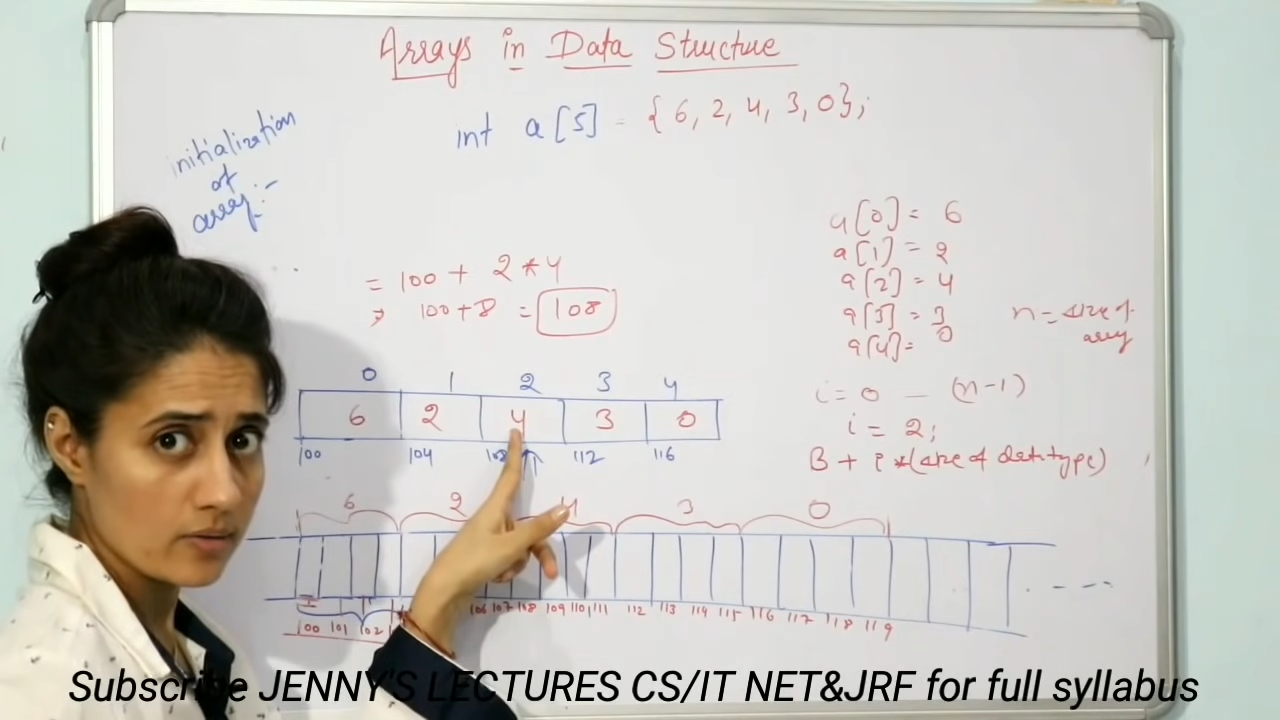 Arrays in Data Structure
int a[5] = {6, 2, 4, 3, 0};
initialization
of
array:-
a[0] = 6
a[1] = 2
a[2] = 4
a[3] = 3
a[4] = 0
n = size of
array
= 100 + 2 * 4
100 + 8 = 108
i = 0 — (n-1)
i = 2;
B + i * (size of datatype)
0 1 2 3 4
6 2 4 3 0
100 104 108 112 116
6 2 4 3 0
100 101 102 106 107 108 109 110 111 112 113 114 115 116 117 118 119
Subscribe JENNY'S LECTURES CS/IT NET&JRF for full syllabus